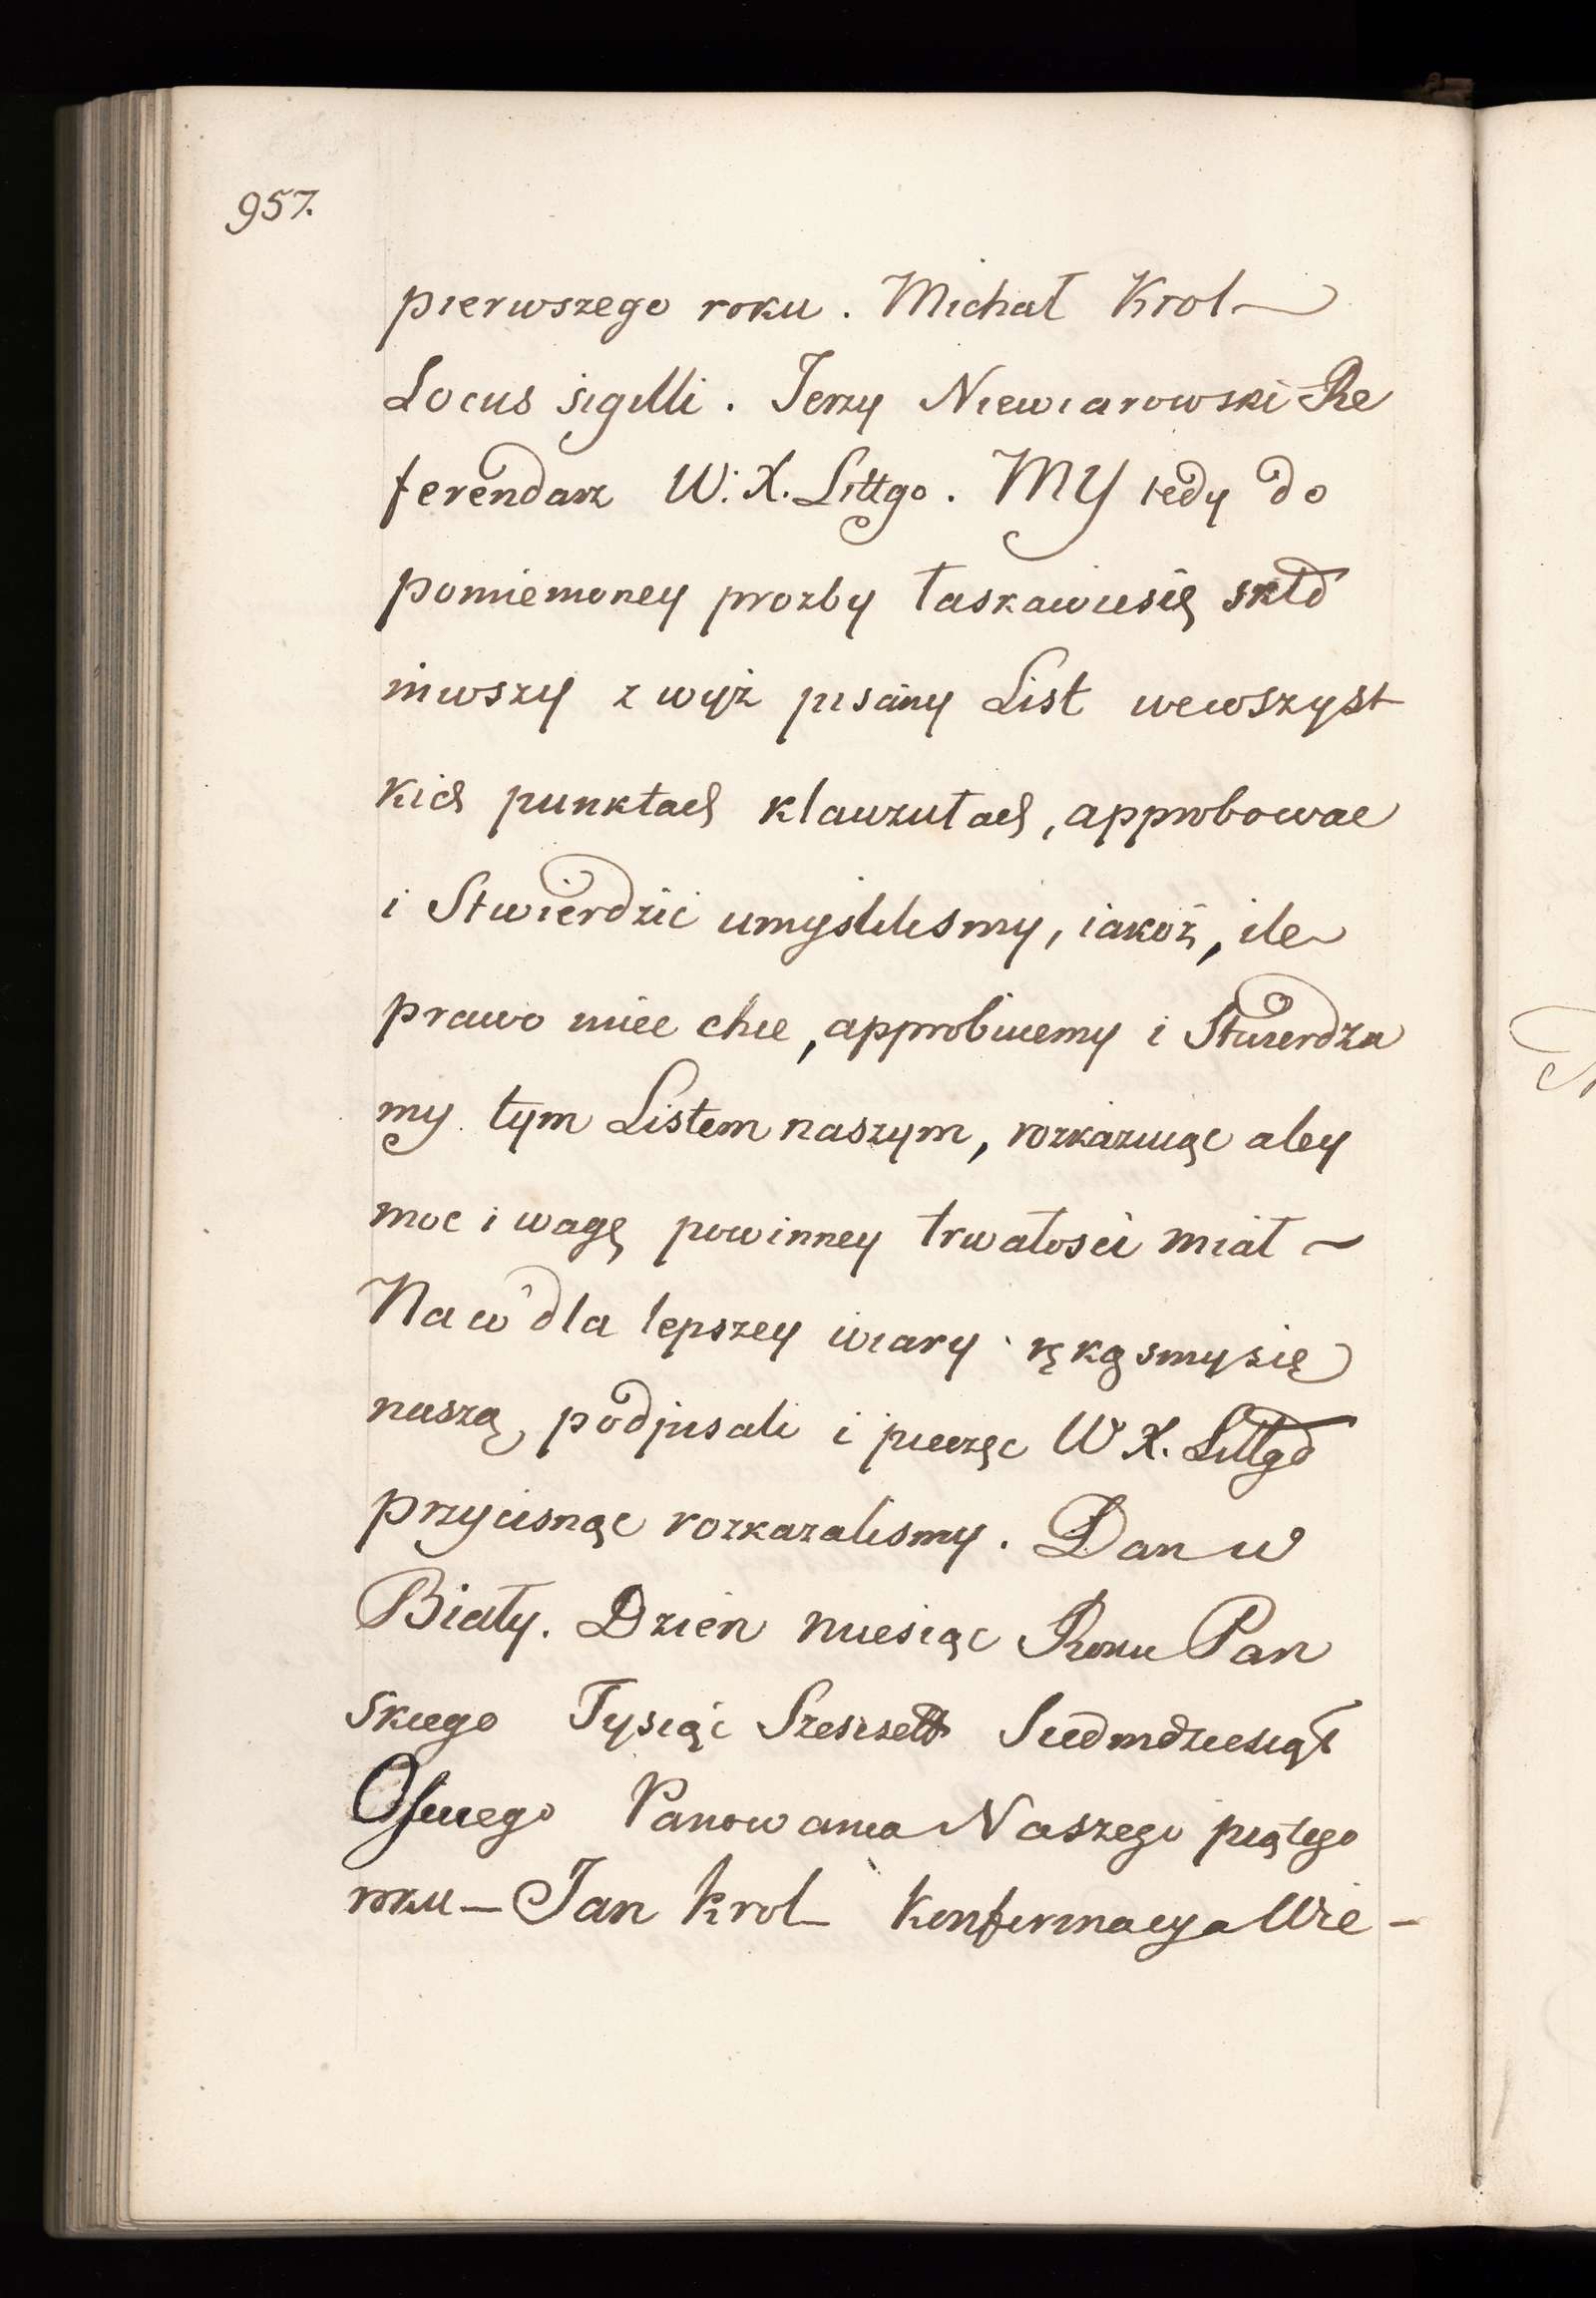 957.
pierwszego roku. Michał Krol —
Locus sigilli. Jerzy Niewiarowski Re
ferendarz W. X. Littgo. MY tedy do
pomiemoney prozby łaskawiesię skło
niwszy z wyż pisany List wewszyst
kich punktach klauzułach, approbowac
i Stwierdzić umyslilismy, iakoż, ile
prawo miec chce, approbuiemy i Stwierdza
my tym Listem naszym, rozkazuiąc abey
moc i wagę powinney trwałosci miał ~
Na co dla lepszey wiary ręką smysię
naszą podpisali i pieczęc W X. Littgo
przycisnąc rozkazalismy. Dan w
Biały. Dzien miesiąc Roku Pan
skiego Tysiąc Szescsett Siedmdziesiąt
Osmego Panowania Naszego piątego
roku — Jan Krol — Konfirmacya Wie -